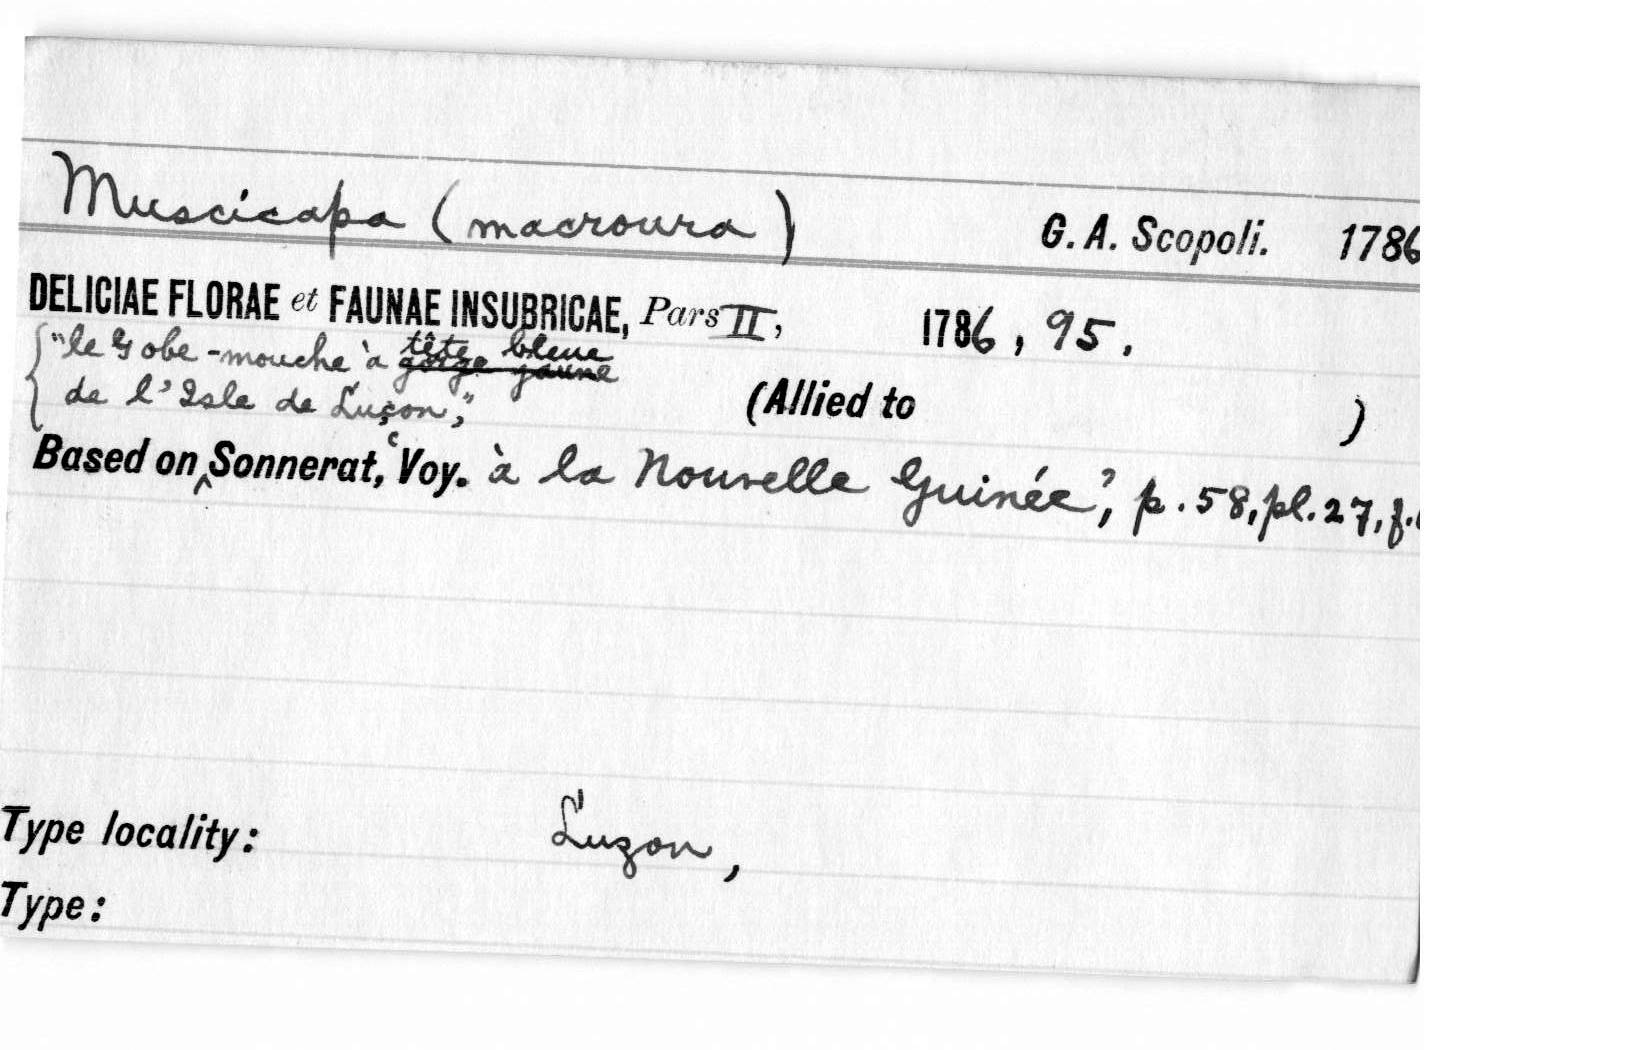 Muscicapa (macroura) G. A. Scopoli. 1786
DELICIAE FLORAE et FAUNAE INSUBRICAE, Pars II, 1786, 95.
"le Gobe-mouche à gorge jaune tête bleue
de l'Isle de Luçon," (Allied to )
Based on Sonnerat, 'Voy. à la Nouvelle Guinée', p. 58, pl. 27, f.
Type locality: Luzon,
Type: